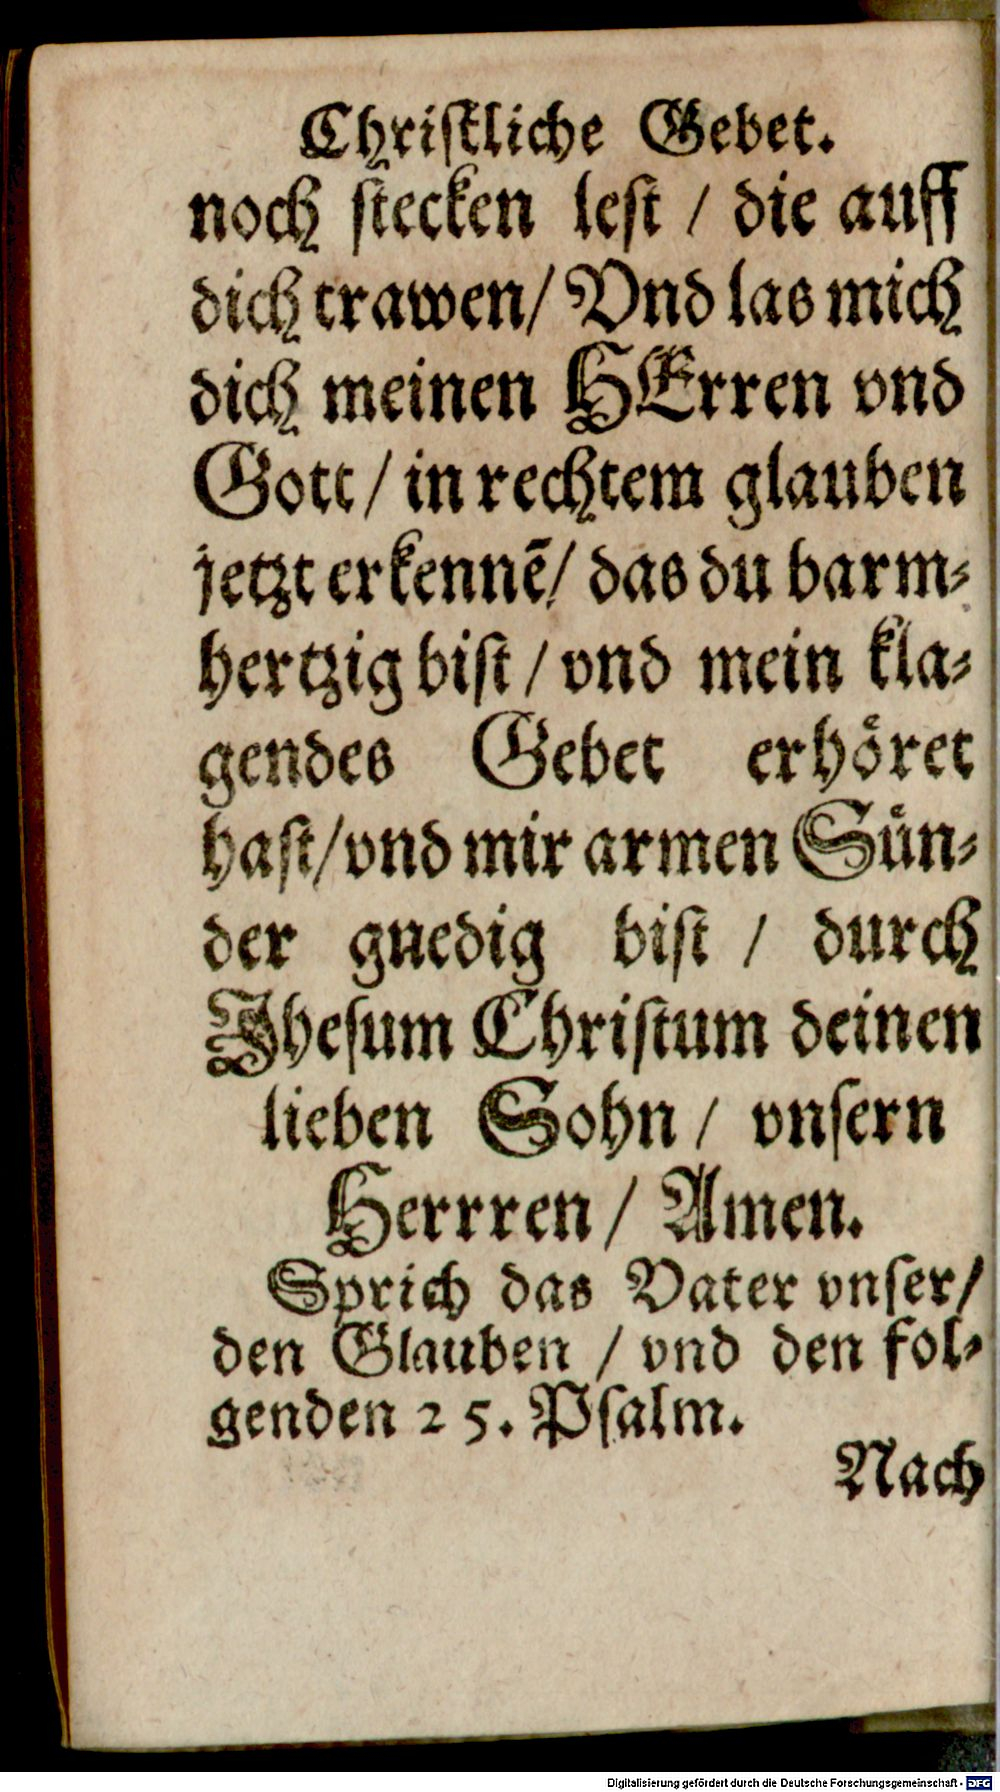 Chriſtliche Gebet.
noch ſtecken leſt / die auff
dich trawen/ Vnd las mich
dich meinen HErren vnd
Gott / in rechtem glauben
jetzt erkennē/ das du barm⸗
hertzig biſt / vnd mein kla⸗
gendes Gebet erhoͤret
haſt/vnd mir armen Suͤn⸗
der gnedig biſt / durch
Jheſum Chriſtum deinen
lieben Sohn / vnſern
Herrren / Amen.
Sprich das Vater vnſer/
den Glauben / vnd den fol⸗
genden 25. Pſalm.
Nach
Digitalisierung gefördert durch die Deutsche Forschungsgemeinschaft - DFG